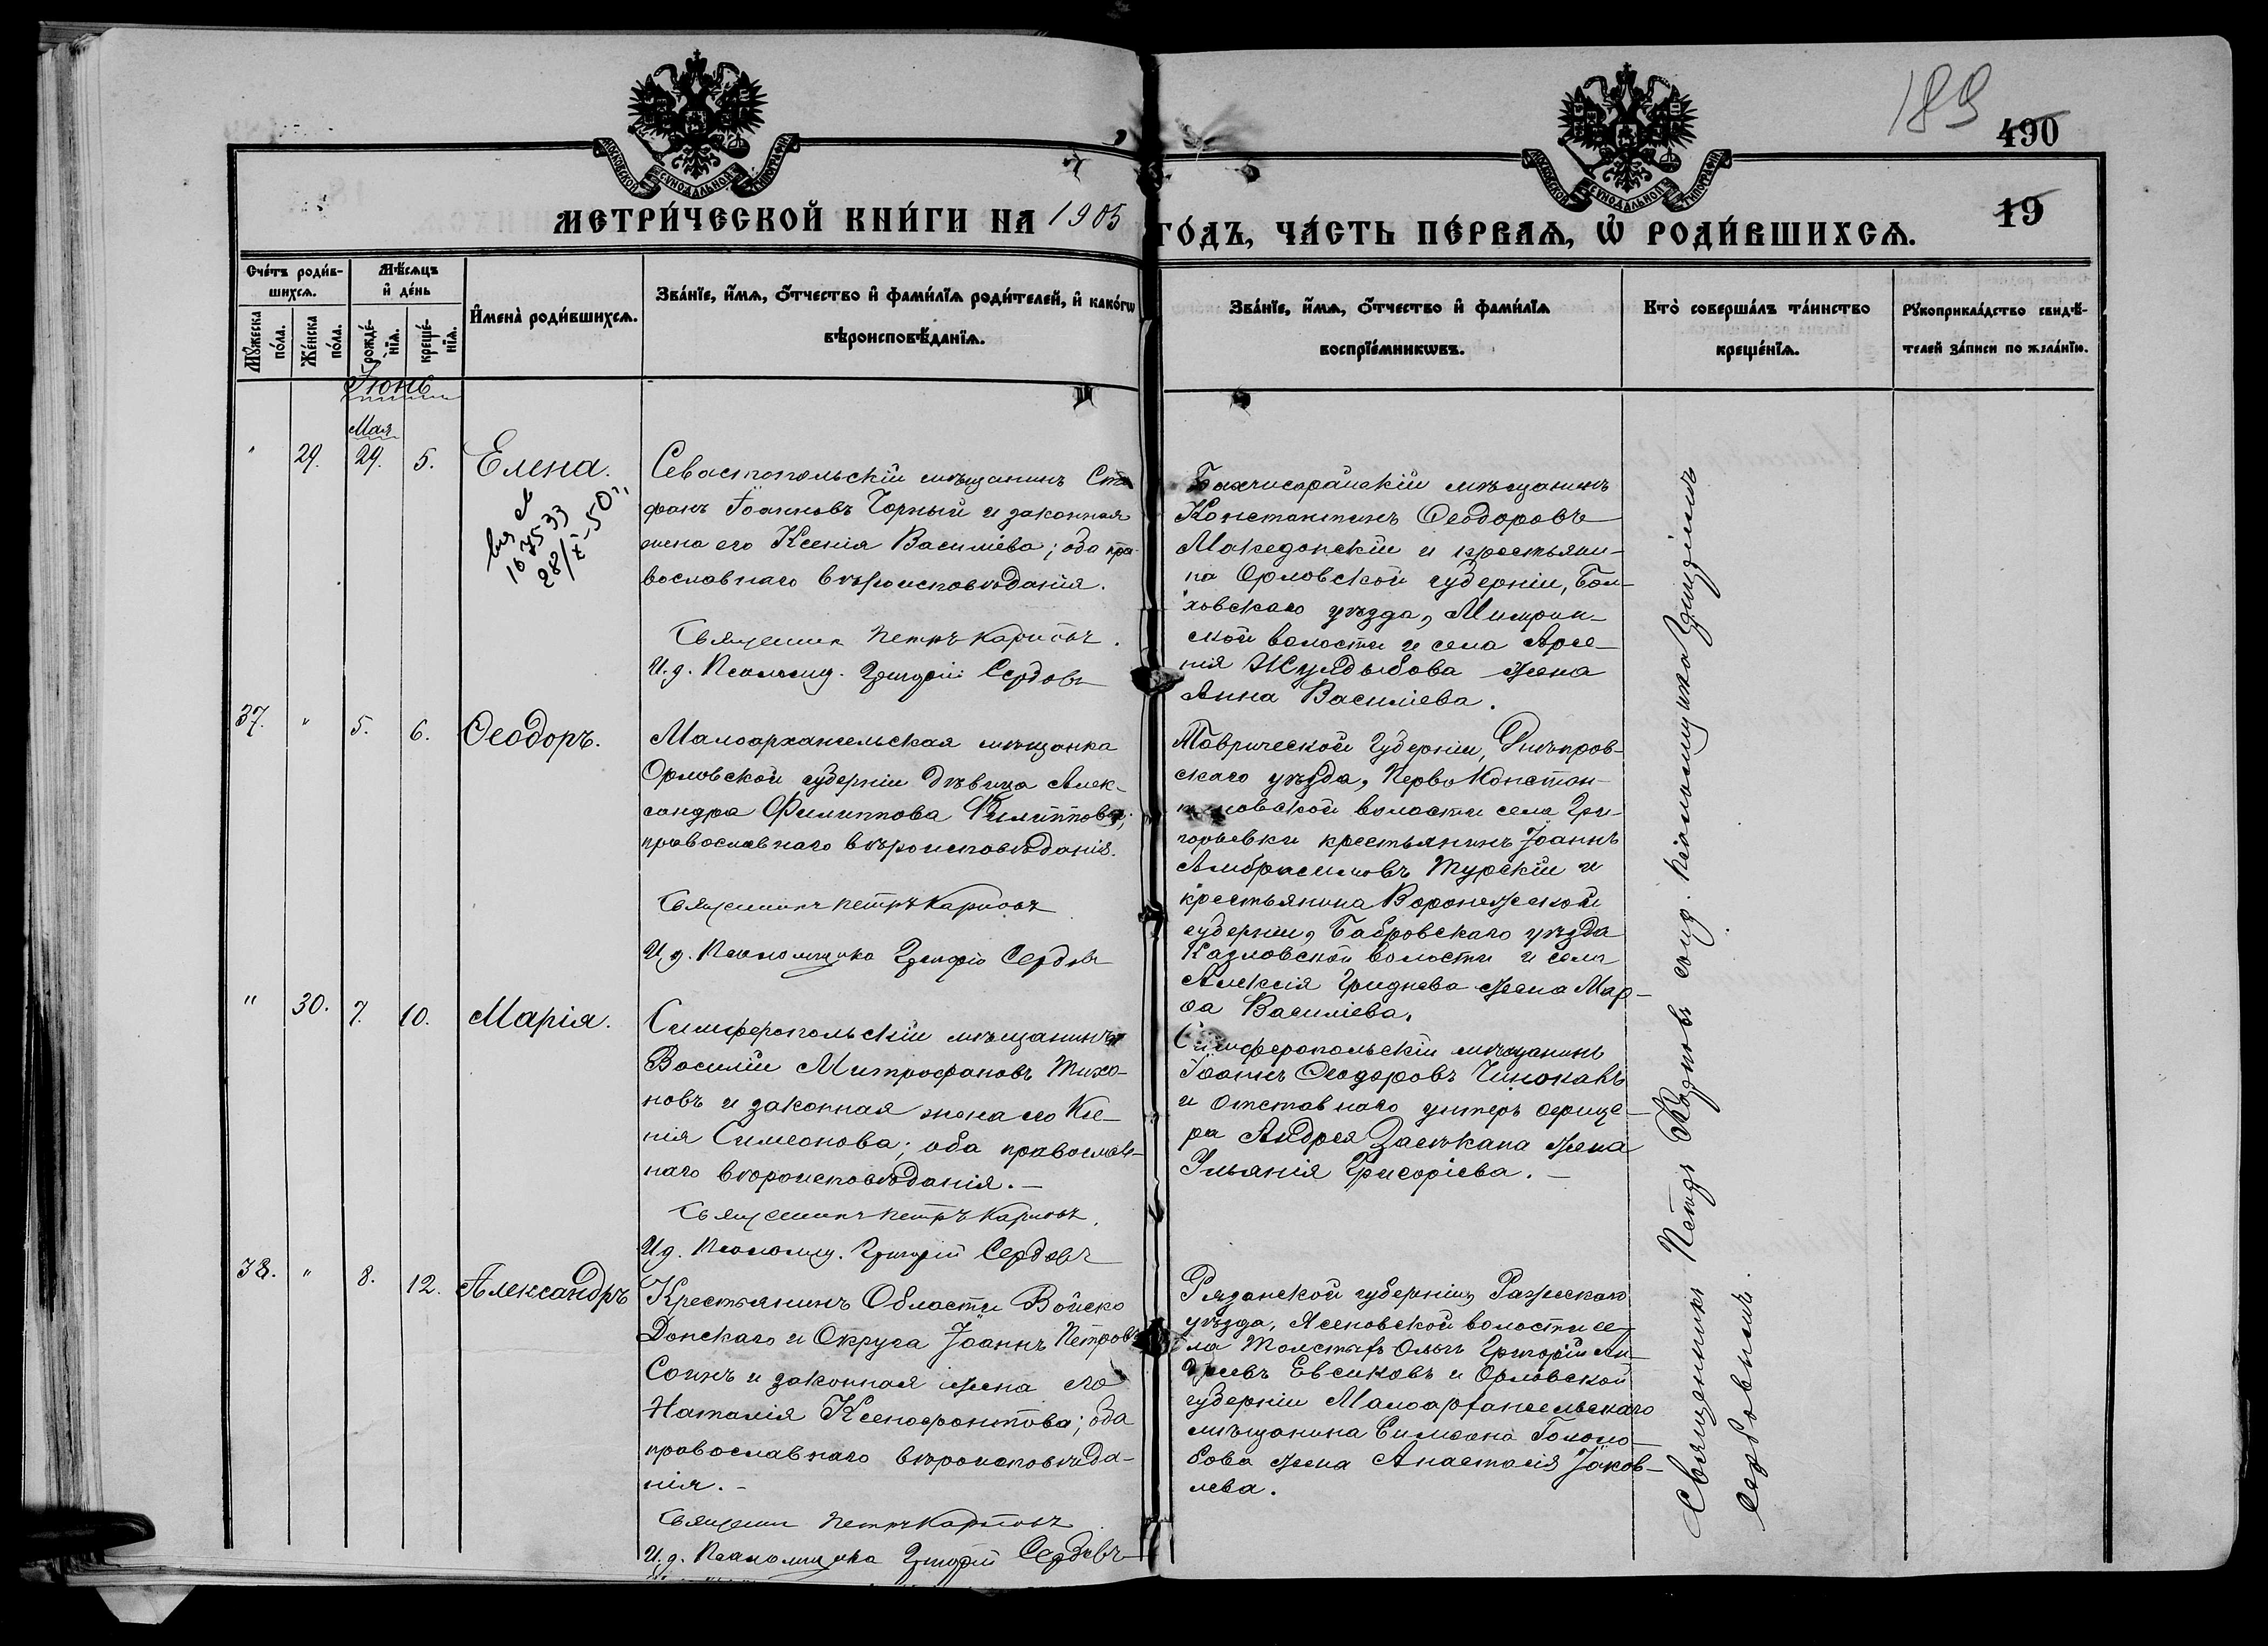 МОСКОВСКОЙ СѴНОДАЛЬНОЙ ТИПОГРАФІИ
МОСКОВСКОЙ СѴНОДАЛЬНОЙ ТИПОГРАФІИ
189
490
19
МЕТРИ́ЧЕСКОЙ КНИ́ГИ НА 1905 ГО́ДЪ, ЧА́СТЬ ПЕ́РВАѦ, Ѽ РОДИ́ВШИХСѦ.
Сче́тъ роди́в-
шихсѧ.
Мѣ́сѧцъ
и҆ де́нь
Мꙋ́жеска
по́ла.
Же́нска
по́ла.
рожде́-
нїѧ.
креще́-
нїѧ.
И҆мена̀ роди́вшихсѧ.
Зва́нїе, и҆́мѧ, ѻ҆́тчество и҆ фами́лїѧ роди́телей, и҆ како́гѡ
вѣроисповѣ́данїѧ.
Зва́нїе, и҆́мѧ, ѻ҆́тчество и҆ фами́лїѧ
воспрїе́мникѡвъ.
Кто̀ соверша́лъ та́инство
креще́нїѧ.
Рꙋкоприкла́дство свидѣ́-
телей за́писи по жела́нїю.
Іюнь
Мая
" 29. 29. 5. Елена.
167533
28/X-50 г.
Севастопольскій мѣщанинъ Сте
фанъ Іоанновъ Чорный и законная
жена его Ксенія Василіева; оба пра-
вославнаго вѣроисповѣданія.
Священникъ Петръ Карповъ.
И.д. Псаломщ. Григорій Сердовъ
Бахчисарайскій мѣщанинъ
Константинъ Ѳеодоровъ
Македонскій и крестьяни-
на Орловской губерніи, Бол-
ховскаго уѣзда,
ской волости и села Арсе-
нія Жулдыбова жена
Анна Василіева.
37. " 5. 6. Ѳеодоръ.
Малоархангельская мѣщанка
Орловской губерніи дѣвица Алек-
сандра Филиппова Филиппова;
православнаго вѣроисповѣданія.
Священникъ Петръ Карповъ
И.д. Псаломщика Григорій Сердовъ
Таврической губерніи, Днѣпров-
скаго уѣзда, Перво Констан-
тиновской волости села Гри-
горьевки крестьянинъ Іоаннъ
Турскій и
крестьянина Воронежской
губерніи, Бабровскаго уѣзда
Казловской волости и села
Алексія Гриднева жена Мар-
ѳа Василіева.
" 30. 7. 10. Марія.
Симферопольскій мѣщанинъ
Василій Митрофановъ Тихо-
новъ и законная жена его Ксе-
нія Симеонова; оба православ-
наго вѣроисповѣданія. —
Священникъ Петръ Карповъ.
И.д. Псаломщ. Григорій Сердовъ
Симферопольскій мѣщанинъ
Іоаннъ Ѳеодоровъ
и отставнаго унтеръ офице-
ра Андрея жена
Ульянія Григоріева. —
38. " 8. 12. Александръ
Крестьянинъ Области Войско
Донскаго и Округа Іоаннъ Петровъ
Соинъ и законная жена его
Наталія Ксенофонтова; оба
православнаго вѣроисповѣда-
нія. —
Священникъ Петръ Карповъ
И.д. Псаломщика Григорій Сердовъ
Рязанской губерніи, Ряжскаго
уѣзда, Ясеновской волости се-
ла Григорій Ан-
дреевъ Евсиковъ и Орловской
губерніи Малоархангельскаго
мѣщанина Симеона Гололо-
бова жена Анастасія Іаков-
лева.
Священникъ Петръ Карповъ съ и.д. псаломщика Григоріемъ
Сердовымъ.